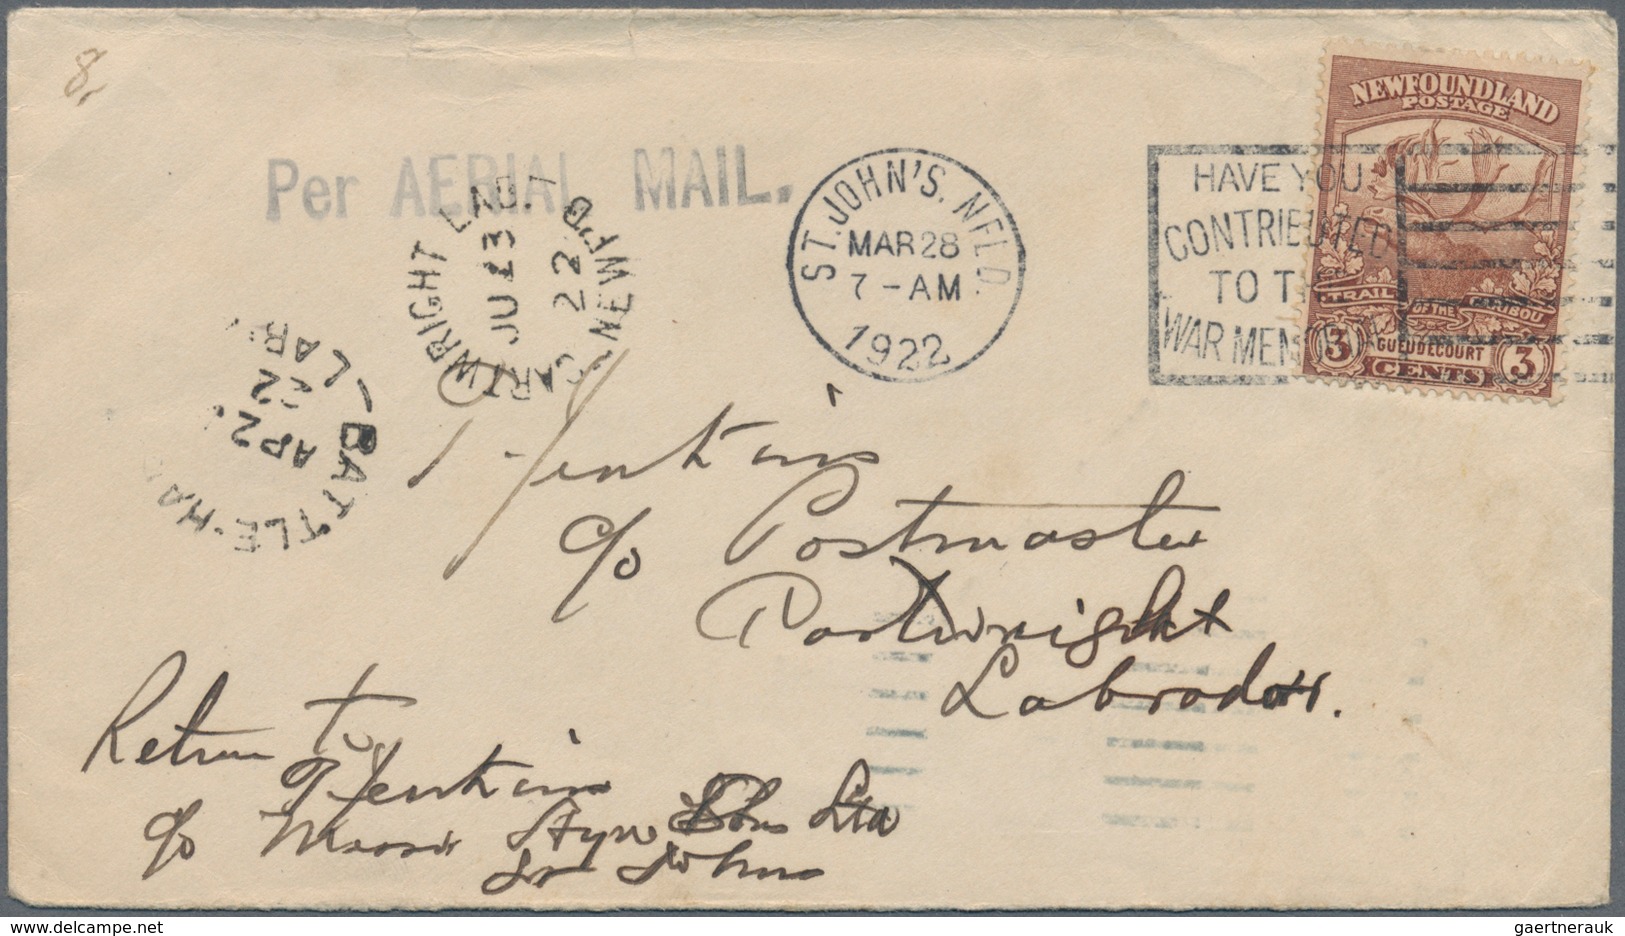 8
Per AERIAL MAIL.
ST. JOHN'S. NFLD.
MAR 28
7 - AM
1922
HAVE YOU
CONTRIBUTED
TO TH
WAR MEMORIAL
NEWFOUNDLAND
POSTAGE
TRAIL OF THE CARIBOU
GUEUDECOURT
3 CENTS 3
CARTWRIGHT LAB.
JU 23
22
NEWF'D
BATTLE-HA
LAB
AP 2
22
Jenkins
c/o Postmaster
Cartwright
Labrador.
Return to
Jenkins
c/o Sons Ltd
St Johns
delcampe.net
gaertnerauk